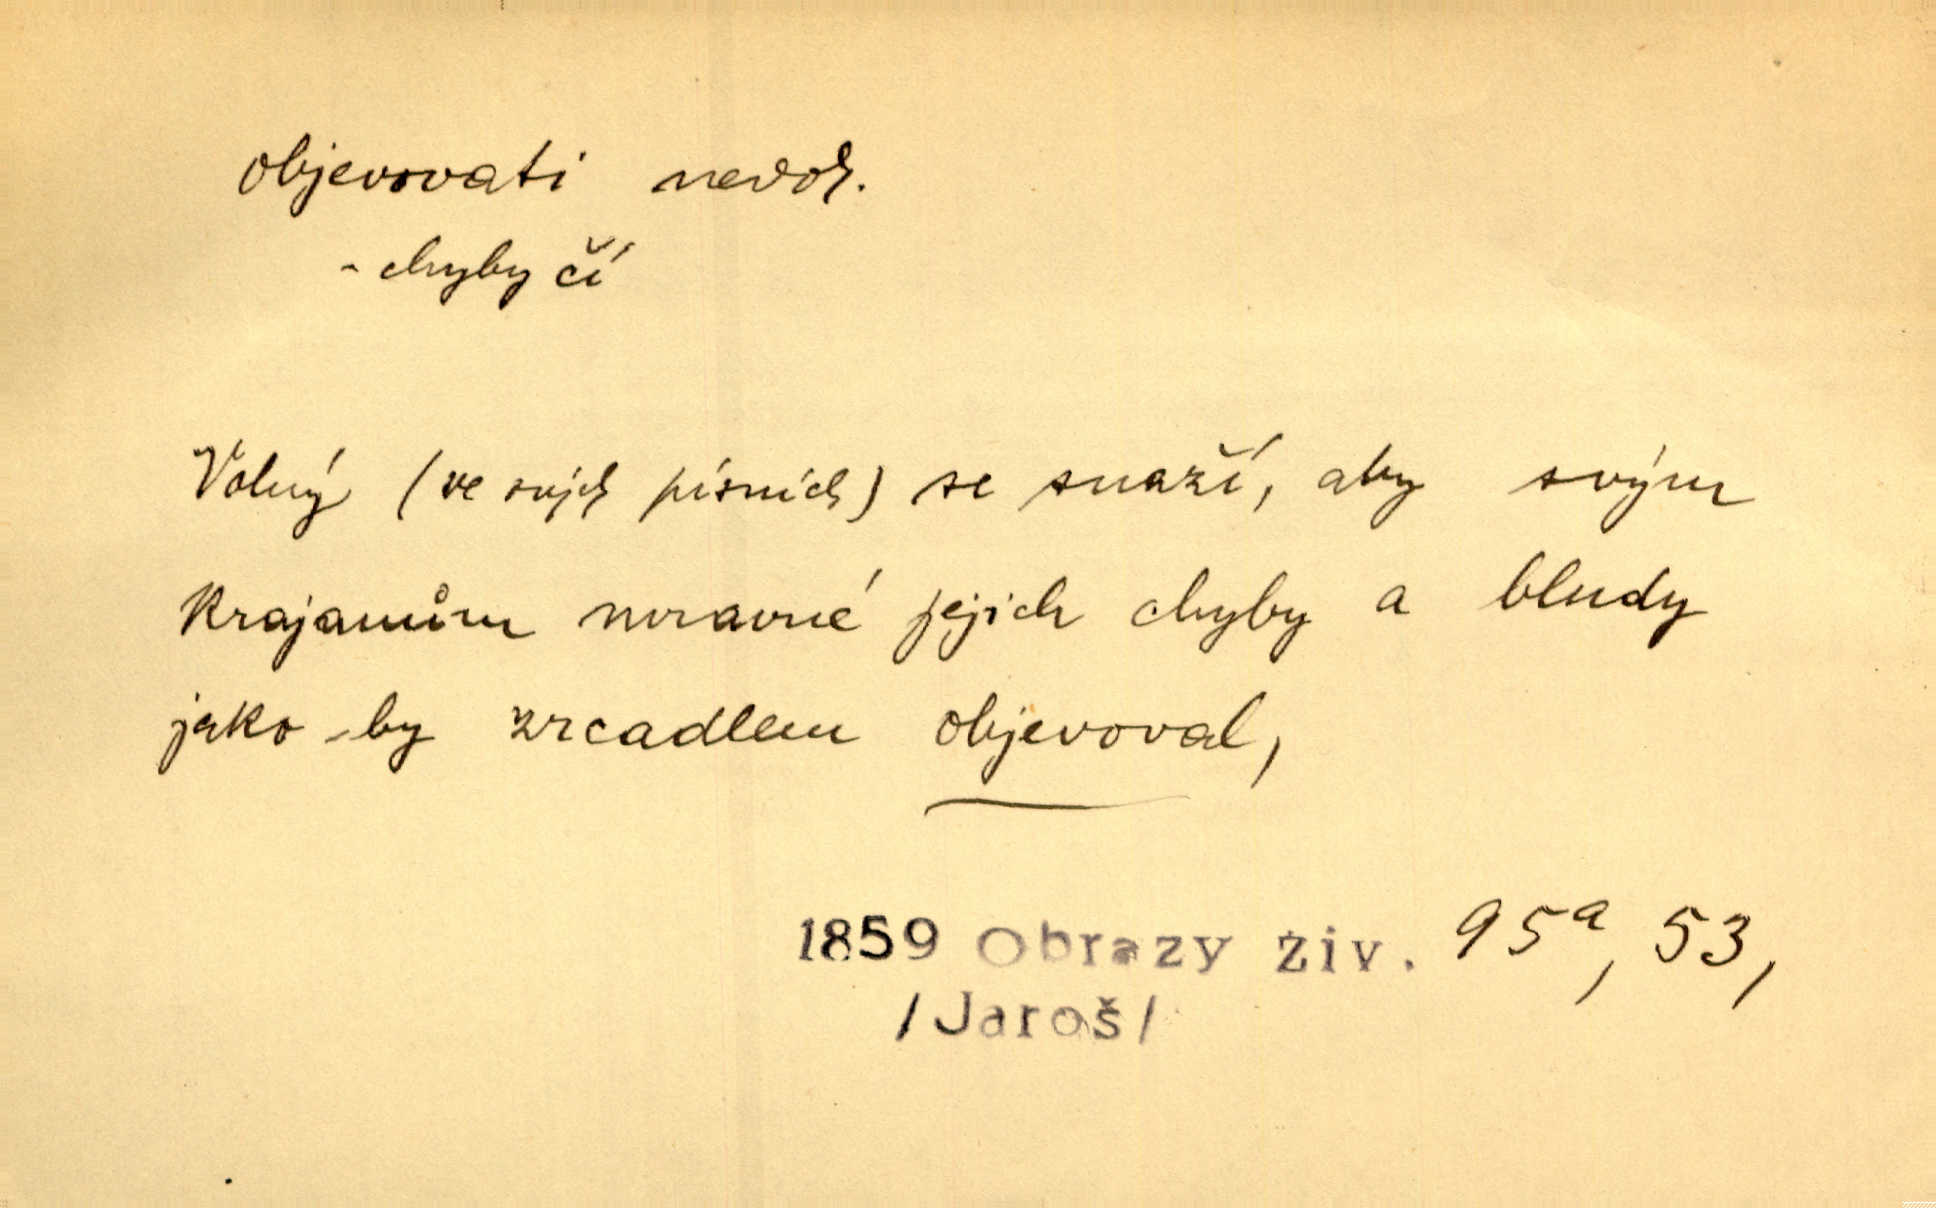 objevovati nedok.
- chyby čí
Volný (ve svých písních) se snaží, aby svým
krajanům mravné jejich chyby a bludy
jako-by zrcadlem objevoval,
1859 Obrazy živ. 95a, 53,
/Jaroš/